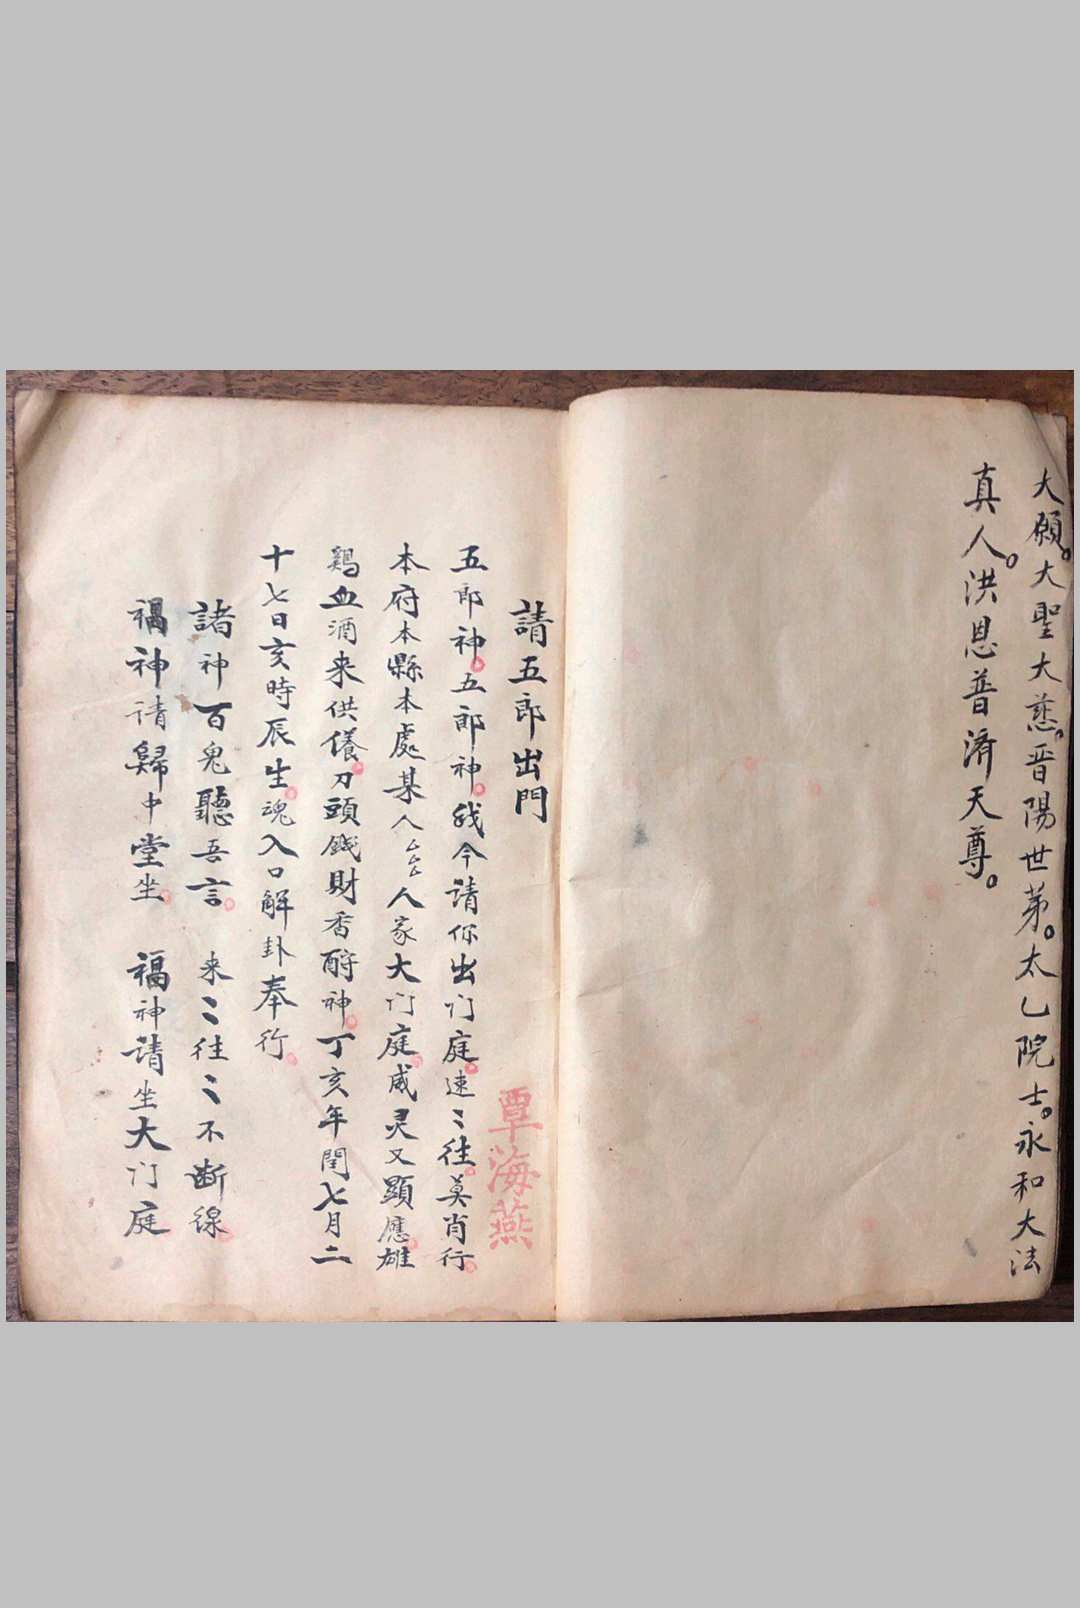 大願。大聖大慈。晋陽世第。太乙院士。永和大法
真人。洪恩普濟天尊。
請五郎出門
覃海燕
五郎神。五郎神。我今請你出门庭。速〻往。莫肖行。
本府本縣本處某人厶厶厶人家大门庭。威灵又顯應。雄
鷄血酒来供儀。刀頭錢財香酹神。丁亥年閏七月二
十七日亥時辰生。魂入口解卦奉行。
諸神百鬼聽吾言。 来〻往〻不断線。
福神请歸中堂坐。 福神請坐大门庭